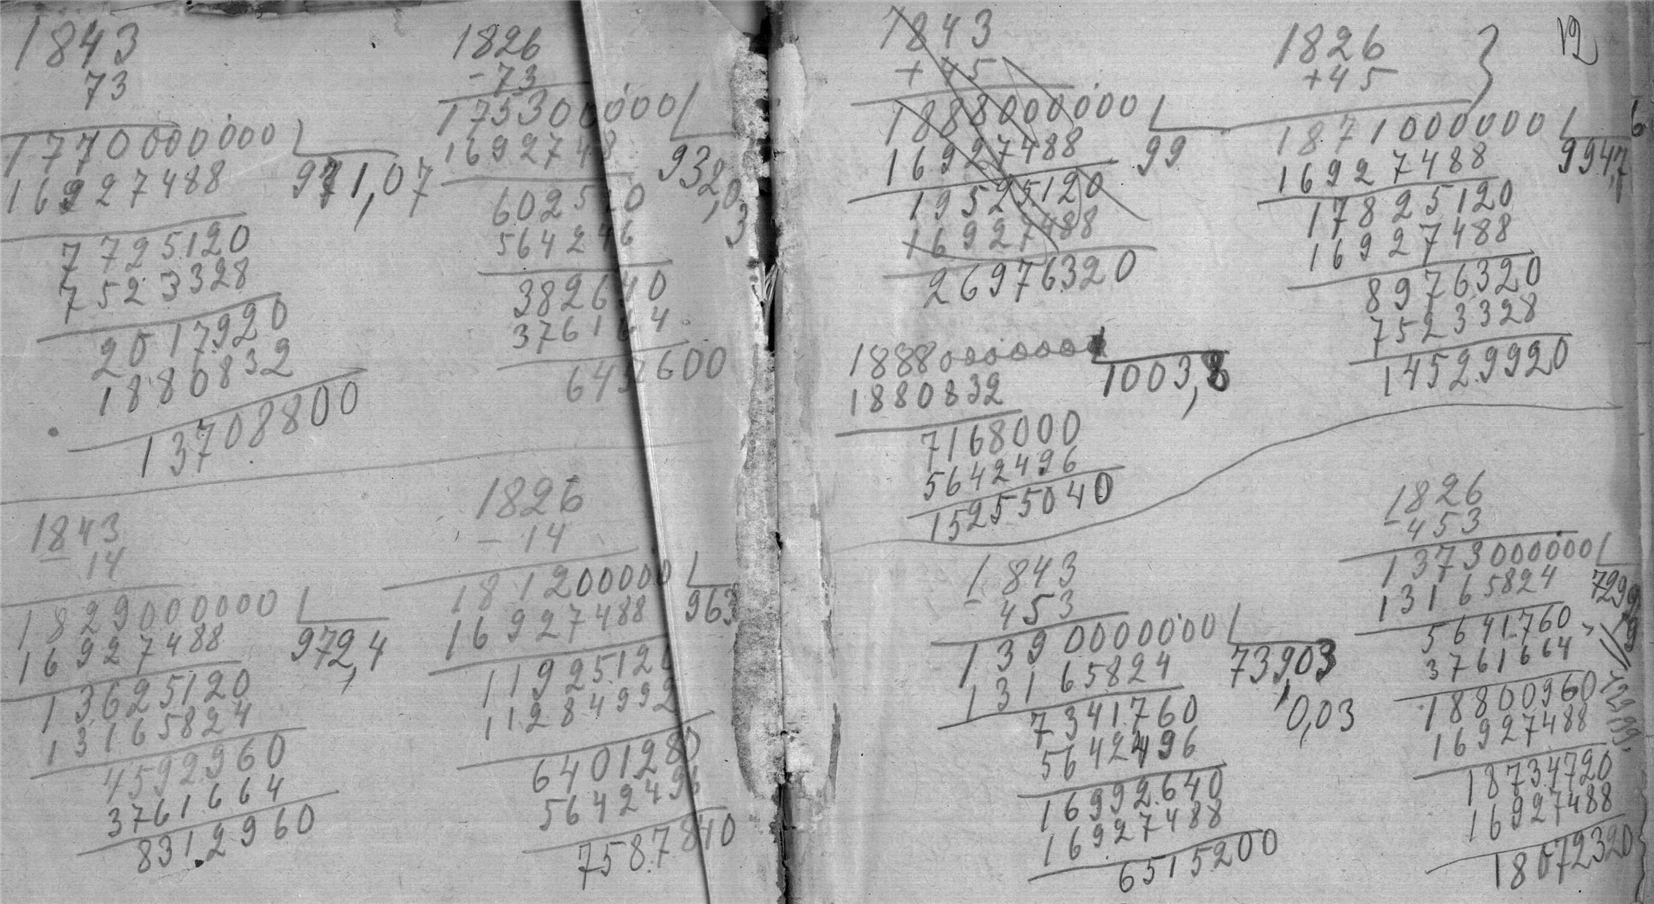 1843
73
1770000000
971,07
16927488
7725120
7523328
2017920
1880832
13708800
1826
-73
1753000000
932,03
16927488
602510
564246
382640
376164
6457600
1843
-14
1829000000
972,4
16927488
13625120
13165824
4592960
3761664
8312960
1826
-14
181200000
963
16927488
11925120
11284992
6401280
5642496
7587840
12
1843
+45
1888000000
99
16927488
19525120
16927488
26976320
1826
+45
1871000000
994,7
16927488
17825120
16927488
8976320
7523328
14529920
18880000000
1003,8
1880832
7168000
5642496
15255040
1843
-453
1390000000
739,03
0,03
13165824
7341760
5642496
16992640
16927488
6515200
1826
-453
1373000000
13165824
5641760
3761664
18800960
16927488
18734720
16927488
18072320